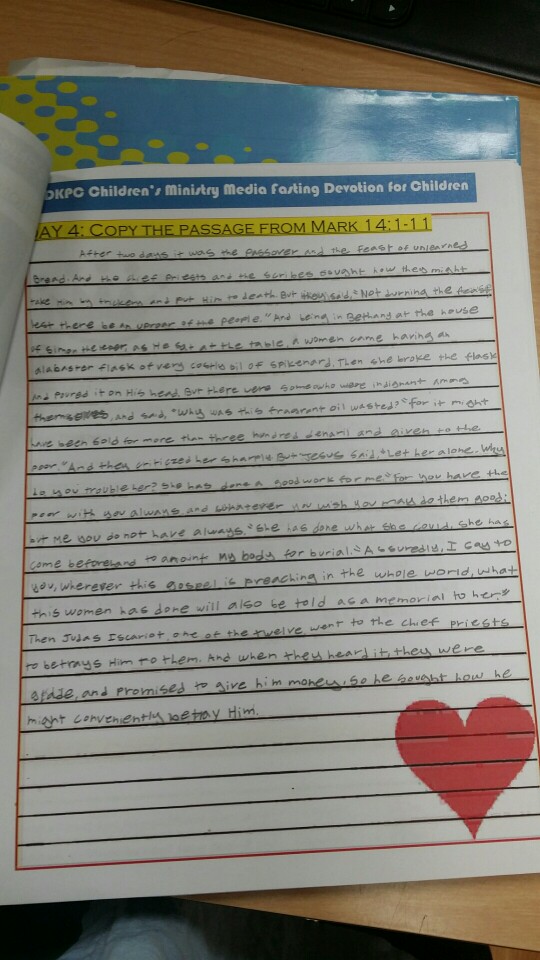 DKPC Children's Ministry Media Fasting Devotion for Children
AY 4: COPY THE PASSAGE FROM MARK 14:1-11
After two days it was the Passover and the Feast of unleaned
Bread. And the chief Priests and the scribes sought how they might
take Him by trickery and put Him to death. But they said, "Not durning the feast
lest there be an uproar of the people." And being in Bethany at the house
of Simon the leper, as He sat at the table, a women came having an
alabaster flask of very costly oil of spikenard. Then she broke the flask
and poured it on His head. But there were some who were indignant among
themselves, and said, "Why was this fragrant oil wasted?" "For it might
have been sold for more than three hundred denarii and given to the
poor." And they criticized her sharply. But Jesus said, "Let her alone. Why
do you trouble her? She has done a good work for me." For you have the
poor with you always, and whatever you wish you may do them good;
but Me you do not have always. "She has done what she could, she has
come beforehand to anoint My body for burial." Assuredly, I say to
you, wherever this gospel is preaching in the whole world, what
this women has done will also be told as a memorial to her."
Then Judas Iscariot, one of the twelve, went to the chief priests
to betrays Him to them. And when they heard it, they were
and promised to give him money. So he sought how he
might conveniently betray Him.